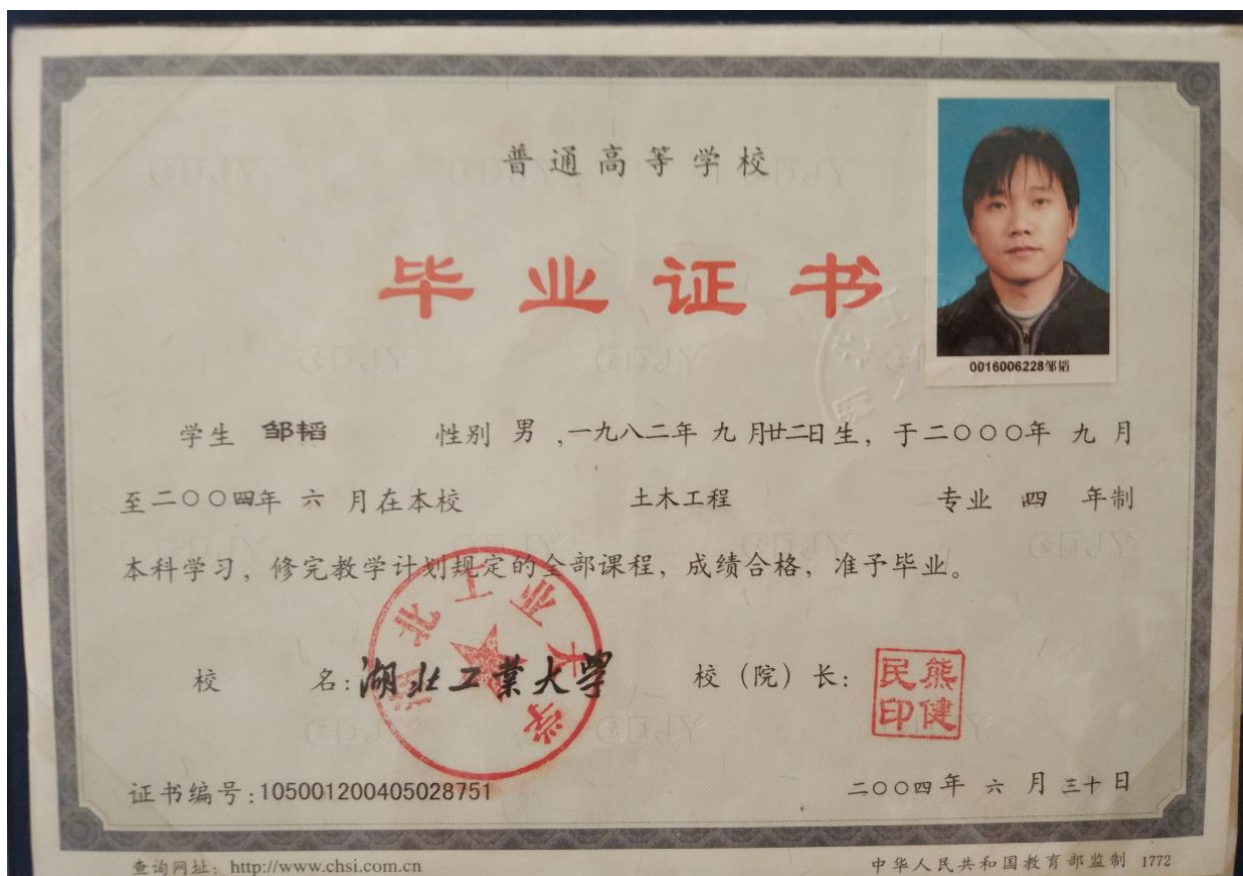 普通高等学校
毕业证书
0016006228邹韬
学生 邹韬 性别 男 ,一九八二年 九 月廿二日生, 于二〇〇〇年 九 月
至二〇〇四年 六 月在本校 土木工程 专业 四 年制
本科学习, 修完教学计划规定的全部课程, 成绩合格, 准予毕业。
校 名: 湖北工业大学 校 (院) 长: 熊健民印
湖北工业大学
证书编号: 105001200405028751 二〇〇四年 六 月 三十日
查询网址: http://www.chsi.com.cn 中华人民共和国教育部监制 1772